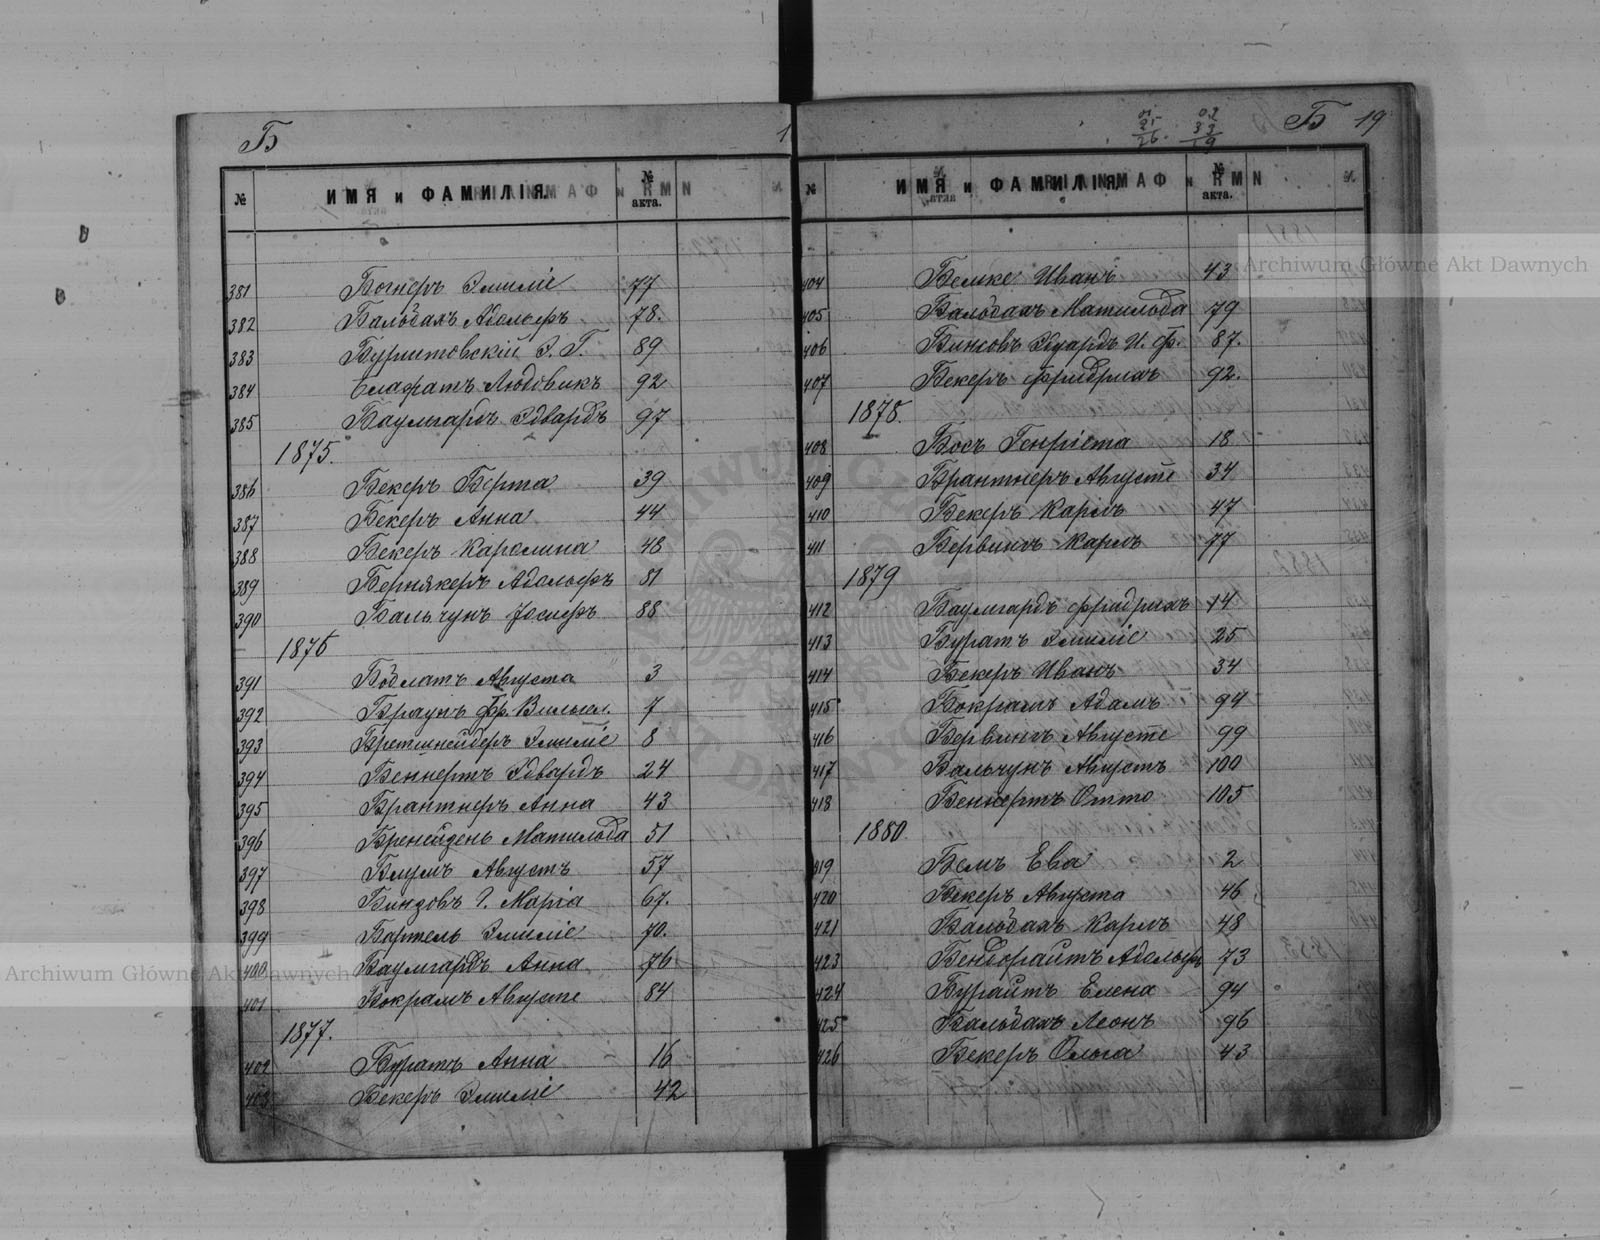 Б
№ ИМЯ и ФАМИЛІЯ № акта.
381 Богнеръ Эмиліе 77
382 Бальдахъ Адольфъ 78.
383 Бурштовскій Э. Г. 89
384 Людовикъ 92
385 Баумгардъ Эдвардъ 97
1875.
386 Бекеръ Берта 39
387 Бекеръ Анна 44
388 Бекеръ Каролина 48
389 Бернякеръ Адольфъ 81
390 Бальчунъ Іосифъ 88
1876
391 Августа 3
392 Браунъ Фр. Вильгел. 7
393 Бретшнейдеръ Эмиліе 8
394 Беннертъ Эдвардъ 24
395 Брантнеръ Анна 43
396 Матильда 51
397 Блумъ Августъ 57
398 Биндовъ Г. Марія 67.
399 Бартель Эмиліе 70.
400 Баумгардъ Анна 76
401 Бокрамъ Августе 84
1877.
402 Буратъ Анна 16
403 Бекеръ Эмиліе 42
Б 19
№ ИМЯ и ФАМИЛІЯ № акта.
404 Бемке Иванъ 43
405 Бальдахъ Матильда 79
406 Эдуардъ И. Ф. 87.
407 Бекеръ Фридрихъ 92.
1878.
408 Босъ Генріета 18
409 Брантнеръ Августе 34
410 Бекеръ Карлъ 47
411 Бервинъ Карлъ 77
1879
412 Баумгардъ Фридрихъ 14
413 Буратъ Эмиліе 25
414 Бекеръ Иванъ 34
415 Бокрамъ Адамъ 94
416 Бервинъ Августе 99
417 Бальчунъ Августъ 100
418 Беннертъ Отто 105
1880.
419 Бемъ Ева 2
420 Бекеръ Августа 46
421 Бальдахъ Карлъ 48
423 Адольфъ 73
424 Бурайтъ Елена 94
425 Бальдахъ Леонъ 96
426 Бекеръ Ольга 43
Archiwum Główne Akt Dawnych
Archiwum Główne Akt Dawnych